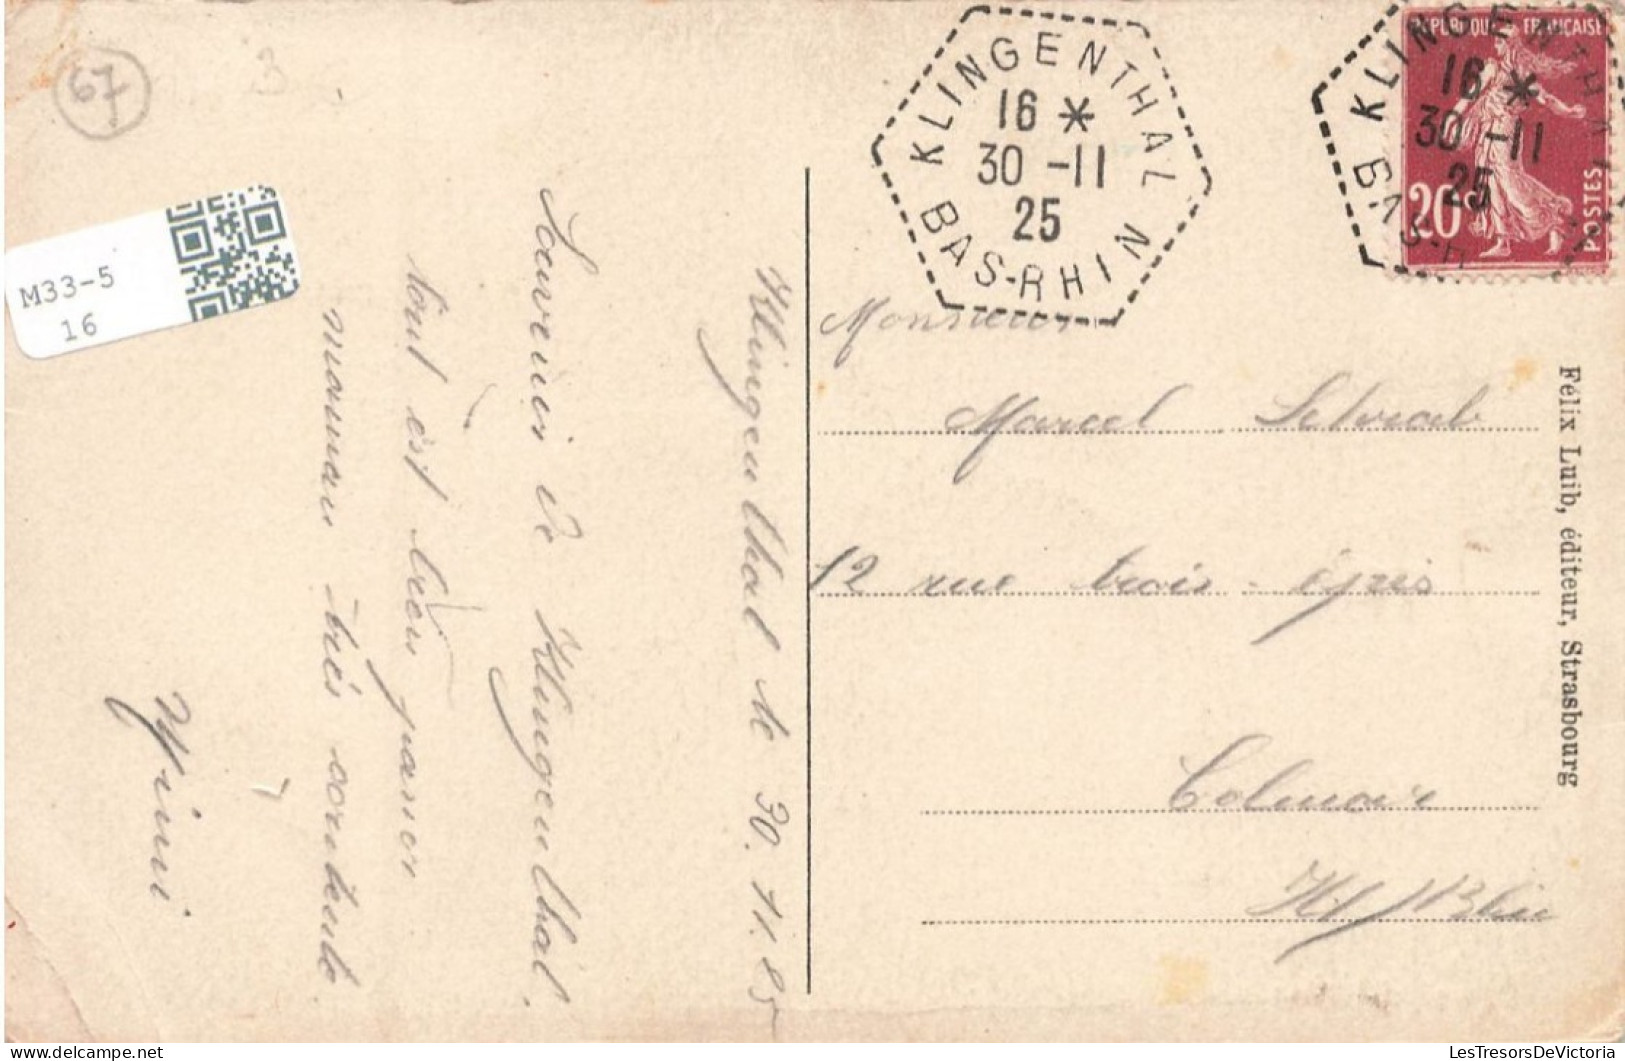 67
3
M33-5
16
KLINGENTHAL
16 *
30 -11
25
BAS-RHIN
RÉPUBLIQUE FRANÇAISE
20c
POSTES
KLINGENTHAL
16 *
30 -11
25
BAS-RH
Klingenthal le 30.11.25
Souvenir de Klingenthal.
tout est bien passer
maman très contente.
Mimi
Monsieur
Marcel
12 rue trois épis
Colmar
Ht/Rhin
Félix Luib, éditeur, Strasbourg
LesTresorsDeVictoria